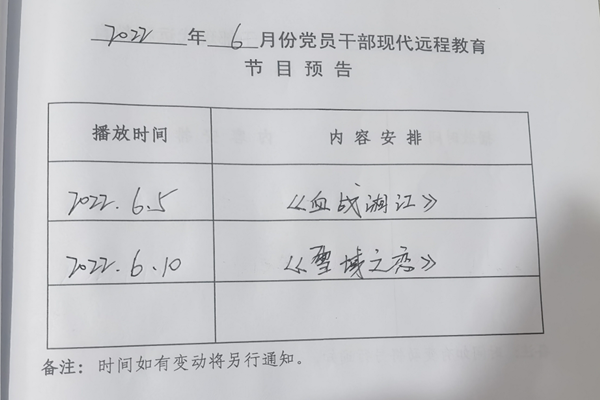 2022 年 6 月份党员干部现代远程教育
节目预告
播放时间 内容安排
2022.6.5 《血战湘江》
2022.6.10 《雪域之恋》
备注：时间如有变动将另行通知。